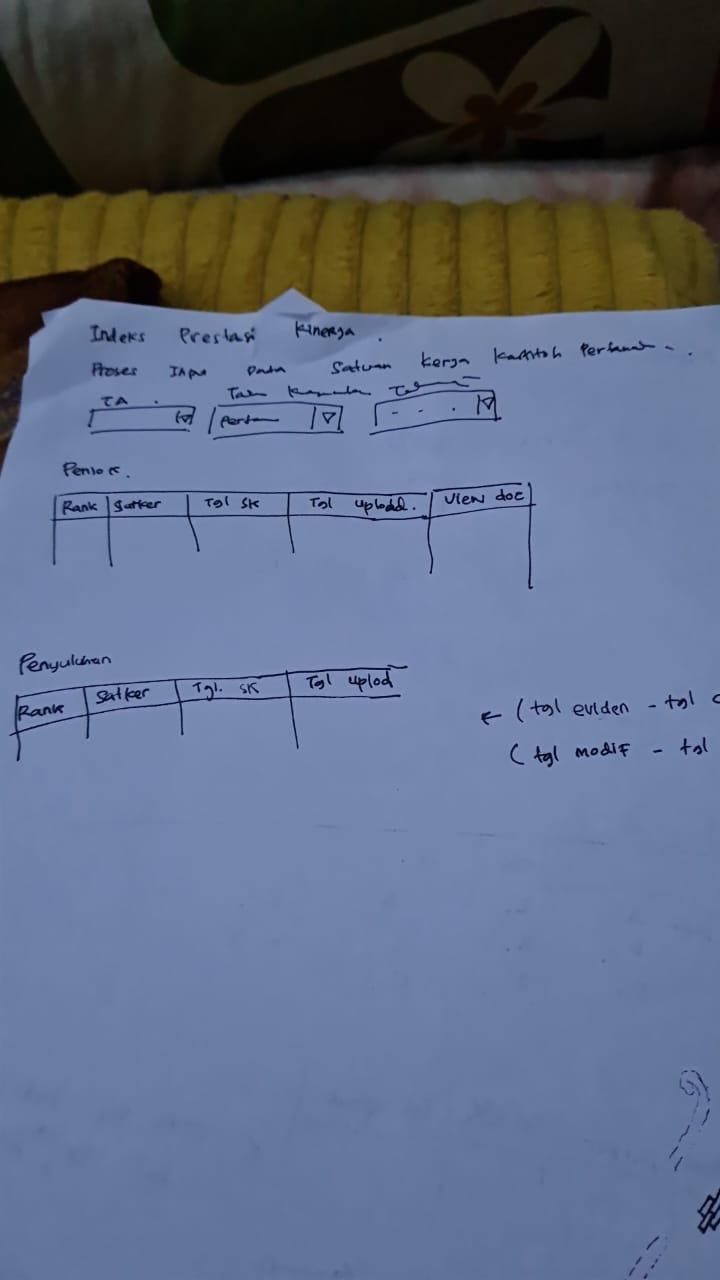 Indeks Prestasi Kinerja.
Proses Data Satuan Kerja Kantah Pertanah
TA.
Pertan
- - .
Penlok.
Rank Satker Tgl SK Tgl upload. View doc
Penyuluhan
Rank Satker Tgl. SK Tgl uplod
← (tgl eviden - tgl
(tgl modif - tgl